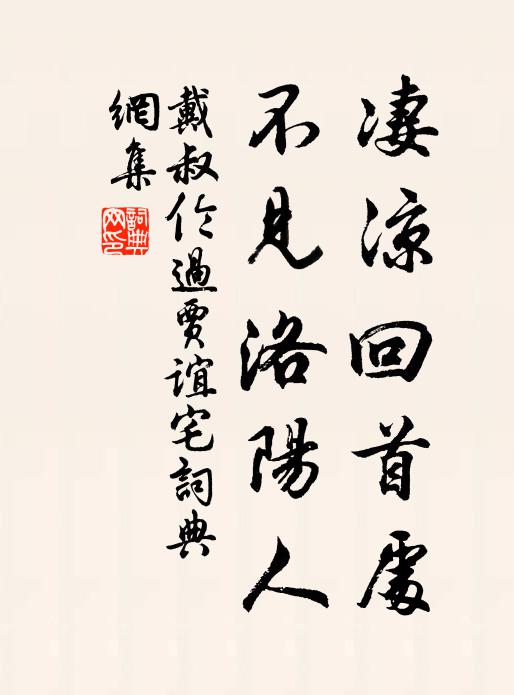 淒涼回首處
不見洛陽人
戴叔伦過賈誼宅詞典
網集
詞典
网印